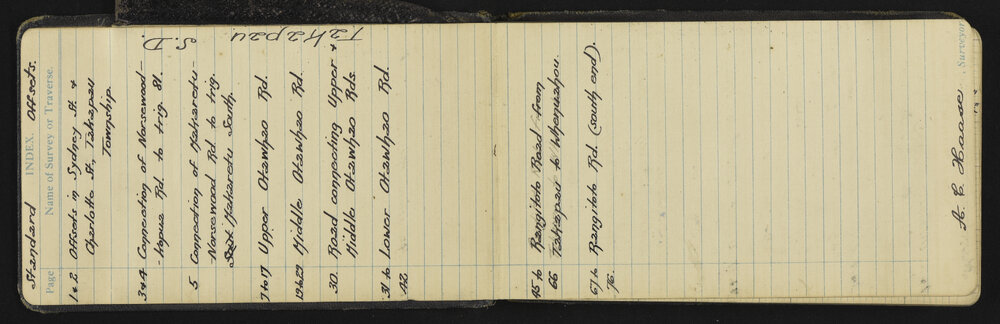 Standard INDEX. Offsets.
Page Name of Survey or Traverse.
1 & 2 Offsets in Sydney St. &
Charlotte St., Takapau
Township.
Takapau S.D.
3 & 4 Connection of Norsewood -
- Hopua Rd. to trig 81.
5 Connection of Makaretu -
- Norsewood Rd to trig.
Makaretu South.
7 to 17 Upper Otawhao Rd.
19 to 29 Middle Otawhao Rd.
30. Road connecting Upper &
Middle Otawhao Rds.
31 to Lower Otawhao Rd.
42.
45 to Rangitoto Road from
66 Takapau to Whenuahou.
67 to Rangitoto Rd. (south end).
76.
A. C. Haase.
Surveyor